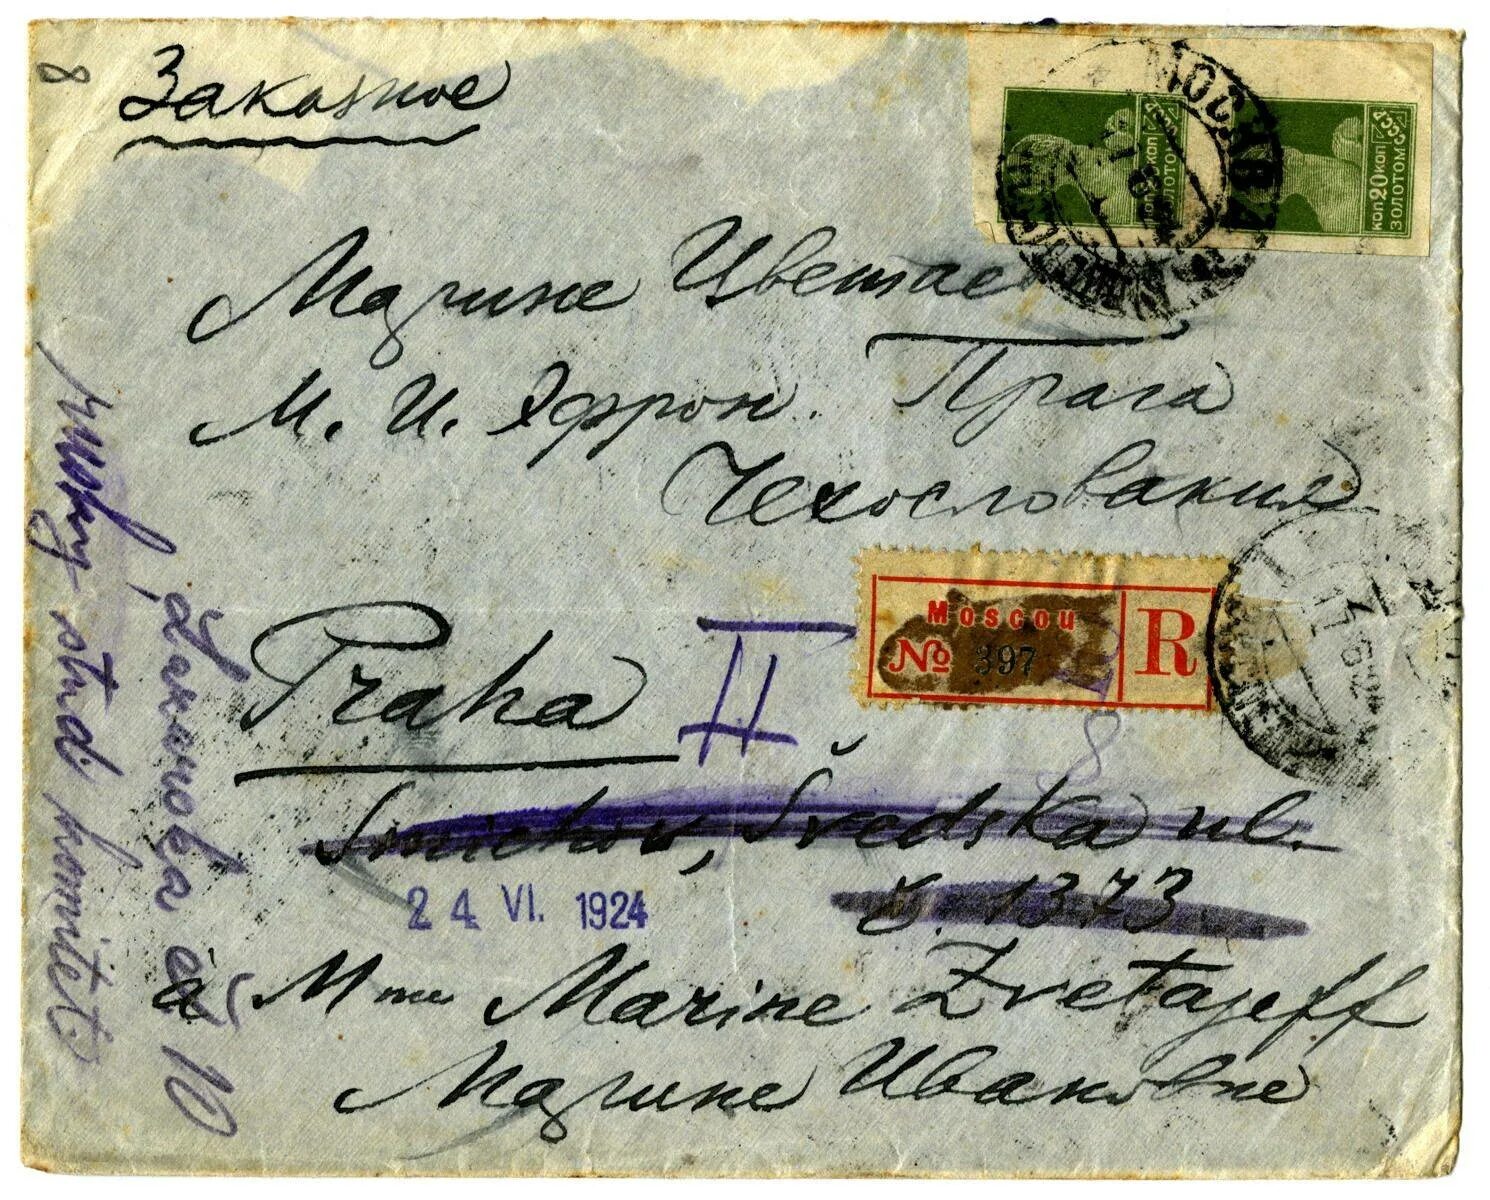 8
Заказное
МОСКВА
20 КОП
ЗОЛОТОМ
КОП 20 КОП
ЗОЛОТОМ
Марине Цветаевой
М. И. Эфрон. Прага
Чехословакия
Moscou
№ 397
R
Praha II
Smichow, Švedska ul.
č. 1373.
8
24 VI. 1924
à Mme Marine Zvetajeff
Марине Ивановне
stud. komitét
č 10